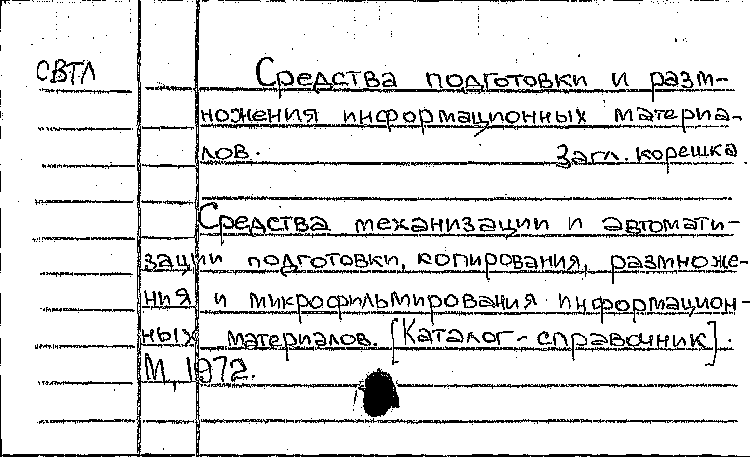 СВТЛ Средства подготовки и разм-
ножения информационных материа-
лов. Загл. корешка
Средства механизации и автомати-
зации подготовки, копирования, размноже-
ния и микрофильмирования информацион-
ных материалов. [Каталог-справочник].
М, 1972.